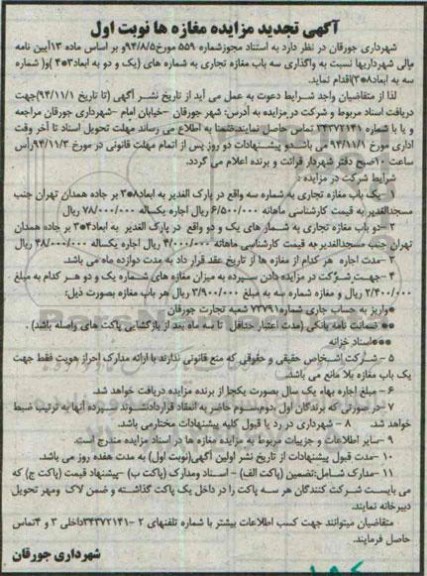 آگهی تجدید مزایده مغازه ها نوبت اول
شهرداری جورقان در نظر دارد به استناد مجوزشماره ۵۵۹ مورخ۹۴/۸/۵و بر اساس ماده ۱۳آیین نامه
مالی شهرداریها نسبت به واگذاری سه باب مغازه تجاری به شماره های (یک و دو به ابعاد۳*۴ )و( شماره
سه به ابعاد۸*۳)اقدام نماید.
لذا از متقاضیان واجد شرایط دعوت به عمل می آید از تاریخ نشر آگهی (تا تاریخ ۹۴/۱۱/۱)جهت
دریافت اسناد مربوط و شرکت در مزایده به آدرس: شهر جورقان -خیابان امام -شهرداری جورقان مراجعه
و یا با شماره ۳۴۳۷۲۱۴۱ تماس حاصل نمایند.ضمنا به اطلاع می رساند مهلت تحویل اسناد تا آخر وقت
اداری مورخ ۹۴/۱۱/۱ می باشدو پیشنهادات دو روز پس از اتمام مهلت قانونی در مورخ ۹۴/۱۱/۳رأس
ساعت ۱۰صبح دفتر شهردار قرائت و برنده اعلام می گردد.
شرایط شرکت در مزایده :
۱- یک باب مغازه تجاری به شماره سه واقع در پارک الغدیر به ابعاد۸*۳ بر جاده همدان تهران جنب
مسجدالغدیر به قیمت کارشناسی ماهانه ۶/۵۰۰/۰۰۰ ریال اجاره یکساله ۷۸/۰۰۰/۰۰۰ ریال
۲-دو باب مغازه تجاری به شماز های یک و دو واقع در پارک الغدیر به ابعاد۴*۳ بر جاده همدان
تهران جنب مسجدالغدیربه قیمت کارشناسی ماهانه ۴/۰۰۰/۰۰۰ ریال اجاره یکساله ۴۸/۰۰۰/۰۰۰ ریال
۳-مدت اجاره هر کدام از مغازه ها از تاریخ عقد قرار داد به مدت دوازده ماه می باشد.
۴- جهت شرکت در مزایده دادن سپرده به میزان مغازه های شماره یک و دو هر کدام به مبلغ
۲/۴۰۰/۰۰۰ ریال و مغازه شماره سه به مبلغ ۳/۹۰۰/۰۰۰ ریال هر باب مغازه بصورت ذیل:
*واریز به حساب جاری شماره۷۳۷۹۱ شعبه تجارت جورقان
** ضمانت نامه بانکی (مدت اعتبار حداقل تا سه ماه بعد از بازگشایی پاکت های واصله باشد) .
***اسناد خزانه
۵- شرکت اشخاص حقیقی و حقوقی که منع قانونی ندارند با ارائه مدارک احراز هویت فقط جهت
یک باب مغازه بلا مانع می باشد.
۶- مبلغ اجاره بهاء یک سال بصورت یکجا از برنده مزایده دریافت خواهد شد.
۷- در صورتی که برندگان اول ،دوم،سوم حاضر به انعقاد قراردادنشوند سپرده آنها به ترتیب ضبط
خواهد شد. ۸ - شهرداری در رد یا قبول کلیه پیشنهادات مختارمی باشد.
۹-سایر اطلاعات و جزییات مربوط به مزایده مغازه ها در اسناد مزایده مندرج است.
۱۰ -مدت قبول پیشنهادات از تاریخ نشر اولین آگهی(نوبت اول) به مدت هفده روز می باشد.
۱۱- مدارک شامل:تضمین (پاکت الف) - اسناد ومدارک (پاکت ب) -پیشنهاد قیمت (پاکت ج) که
می بایست شرکت کنندگان هر سه پاکت را در داخل یک پاکت گذاشته و ضمن لاک ومهر تحویل
دبیرخانه نمایند.
متقاضیان میتوانند جهت کسب اطلاعات بیشتر با شماره تلفنهای ۲ -۳۴۳۷۲۱۴۱داخلی ۳ و ۴تماس
حاصل فرمایند.
شهرداری جورقان